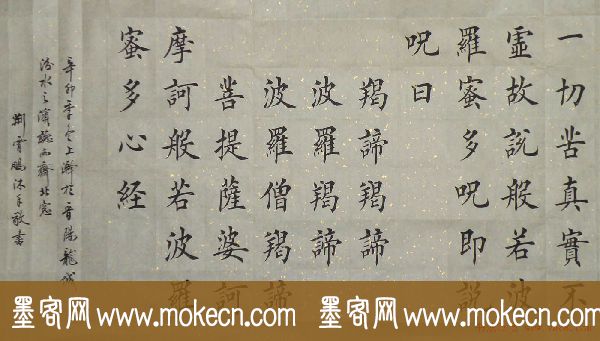 一切苦真實不
虛故說般若波
羅蜜多呪即説
呪曰
羯諦羯諦
波羅羯諦
波羅僧羯諦
菩提薩婆訶
摩訶般若波羅
蜜多心経
辛卯季冬上澣於晋陽龍城
汾水之濱北窓
荆霄鹏沐手敬書
墨客网 www.mokecn.com 墨客网 www.mokecn.com